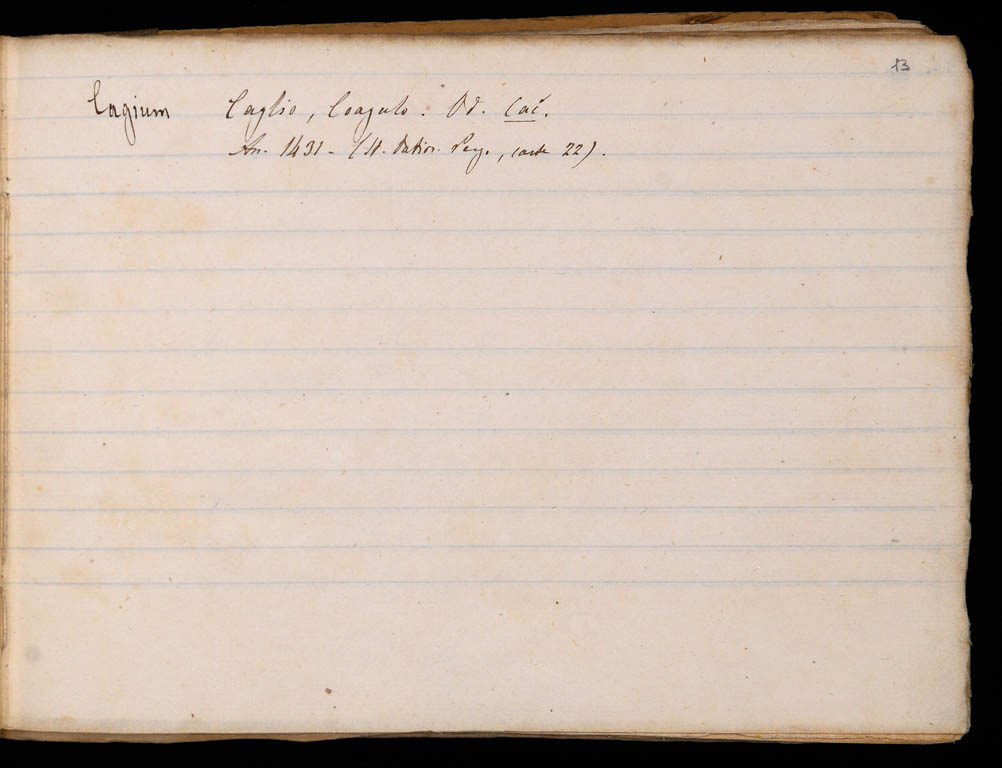 13
Cagium Caglio, Coagulo. Od. Cač.
An. 1431 - (St. Ration. Perg., carte 22).